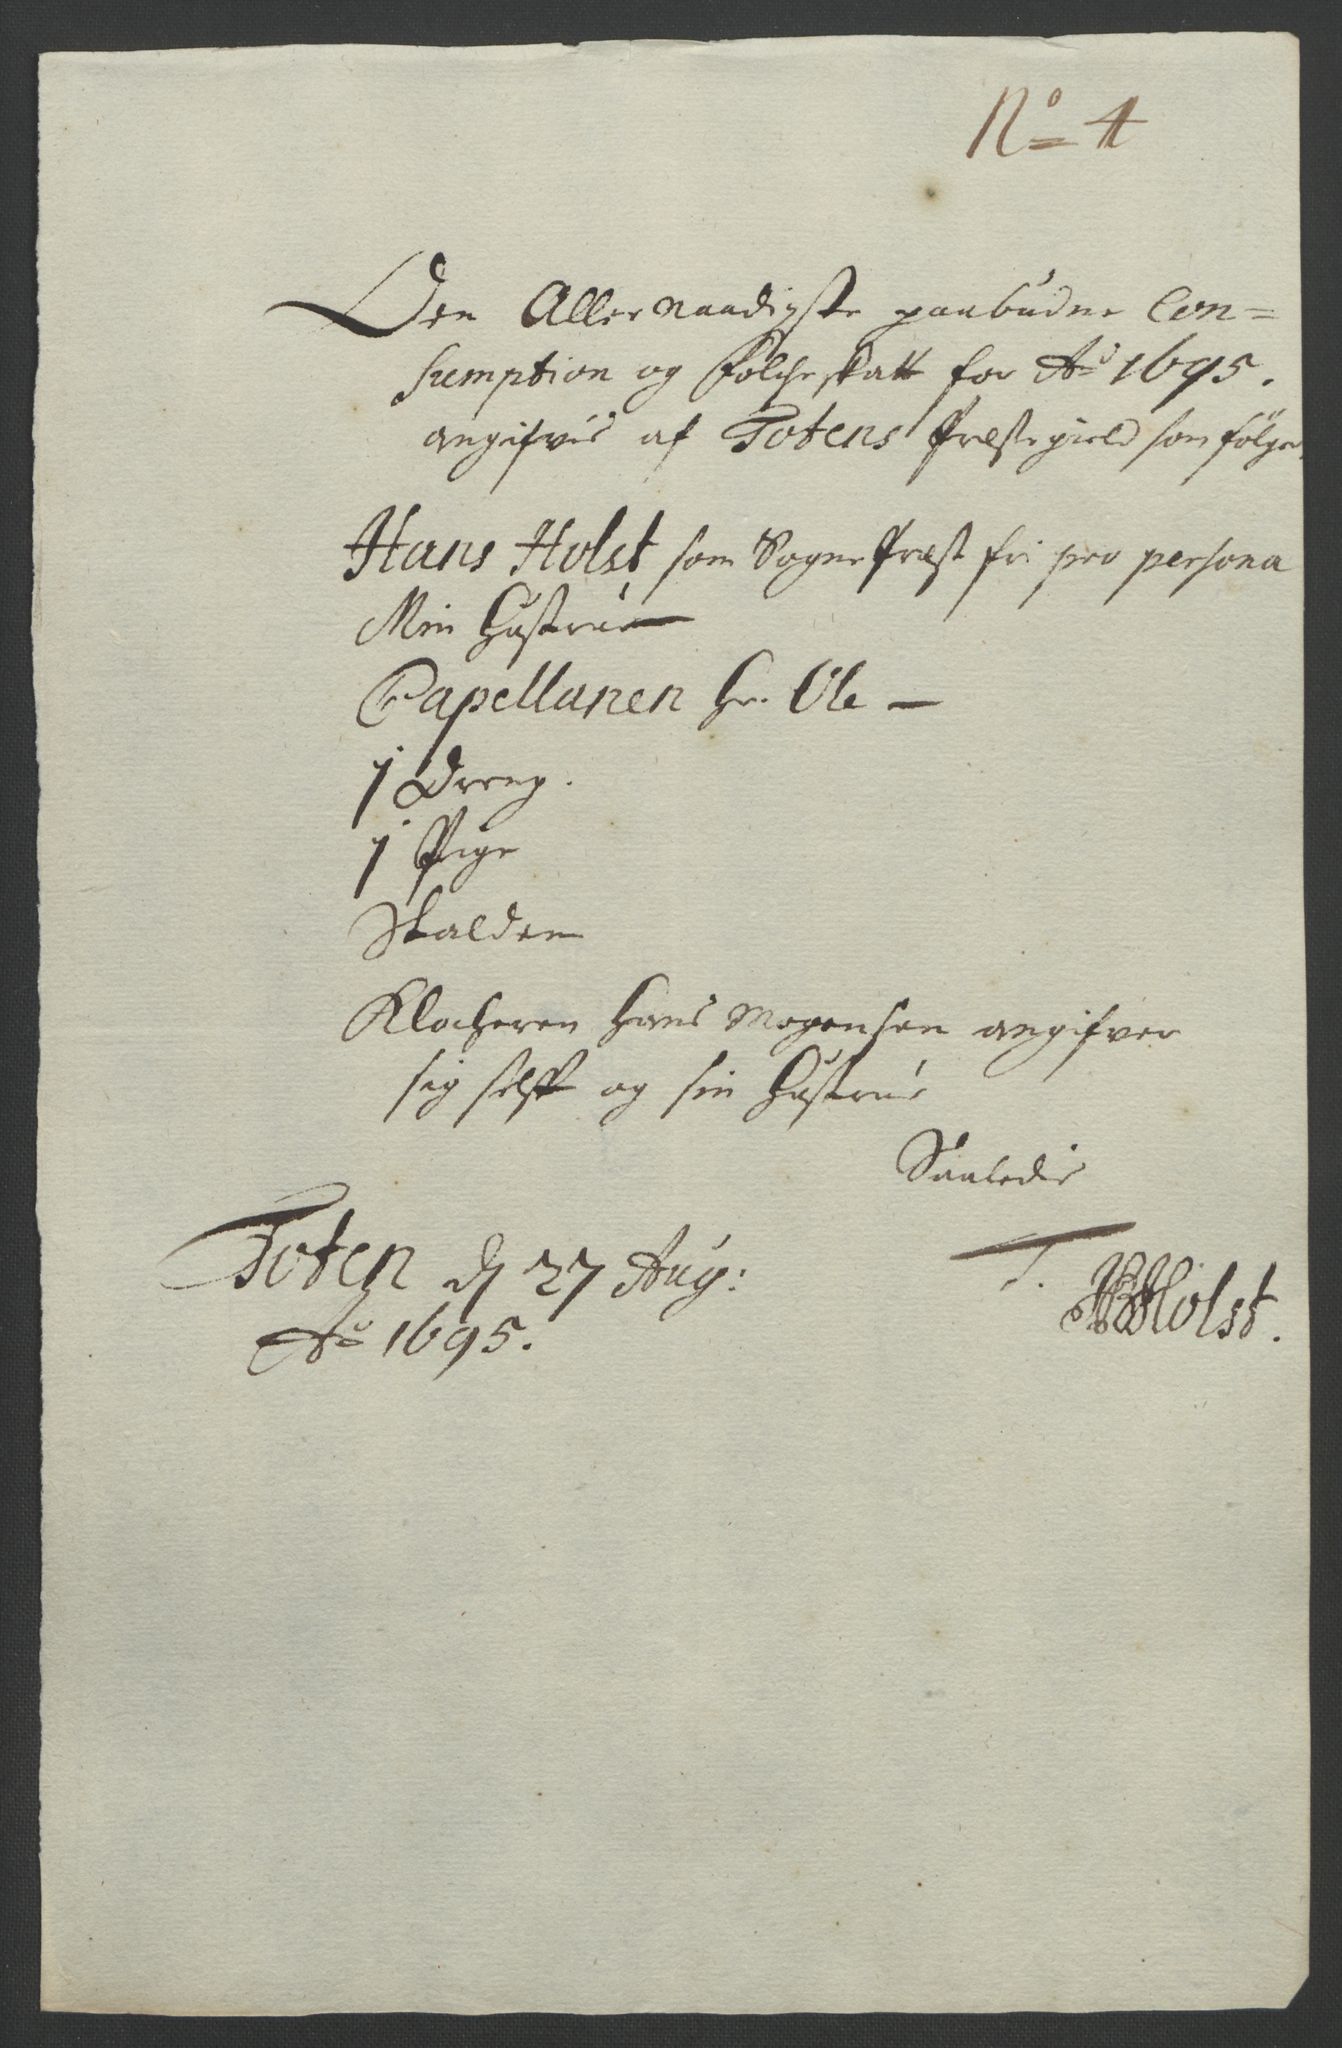 No 4
Den Allernaadigste paabudne Con=
sumption og Folcheskatt for Ao 1695.
angifvis af Totens Præstegield som følger.
Hans Holst som Sognepræst fri pro persona
Min Hustrue
Capellanen Hr. Ole
1 Dreng.
1 Pige
Skalden
Klocheren Hans Mogensen angifver
sig selff og sin Hustrue
Saaledis
Toten d 27 Aug:
Ao 1695.
T. Holst.